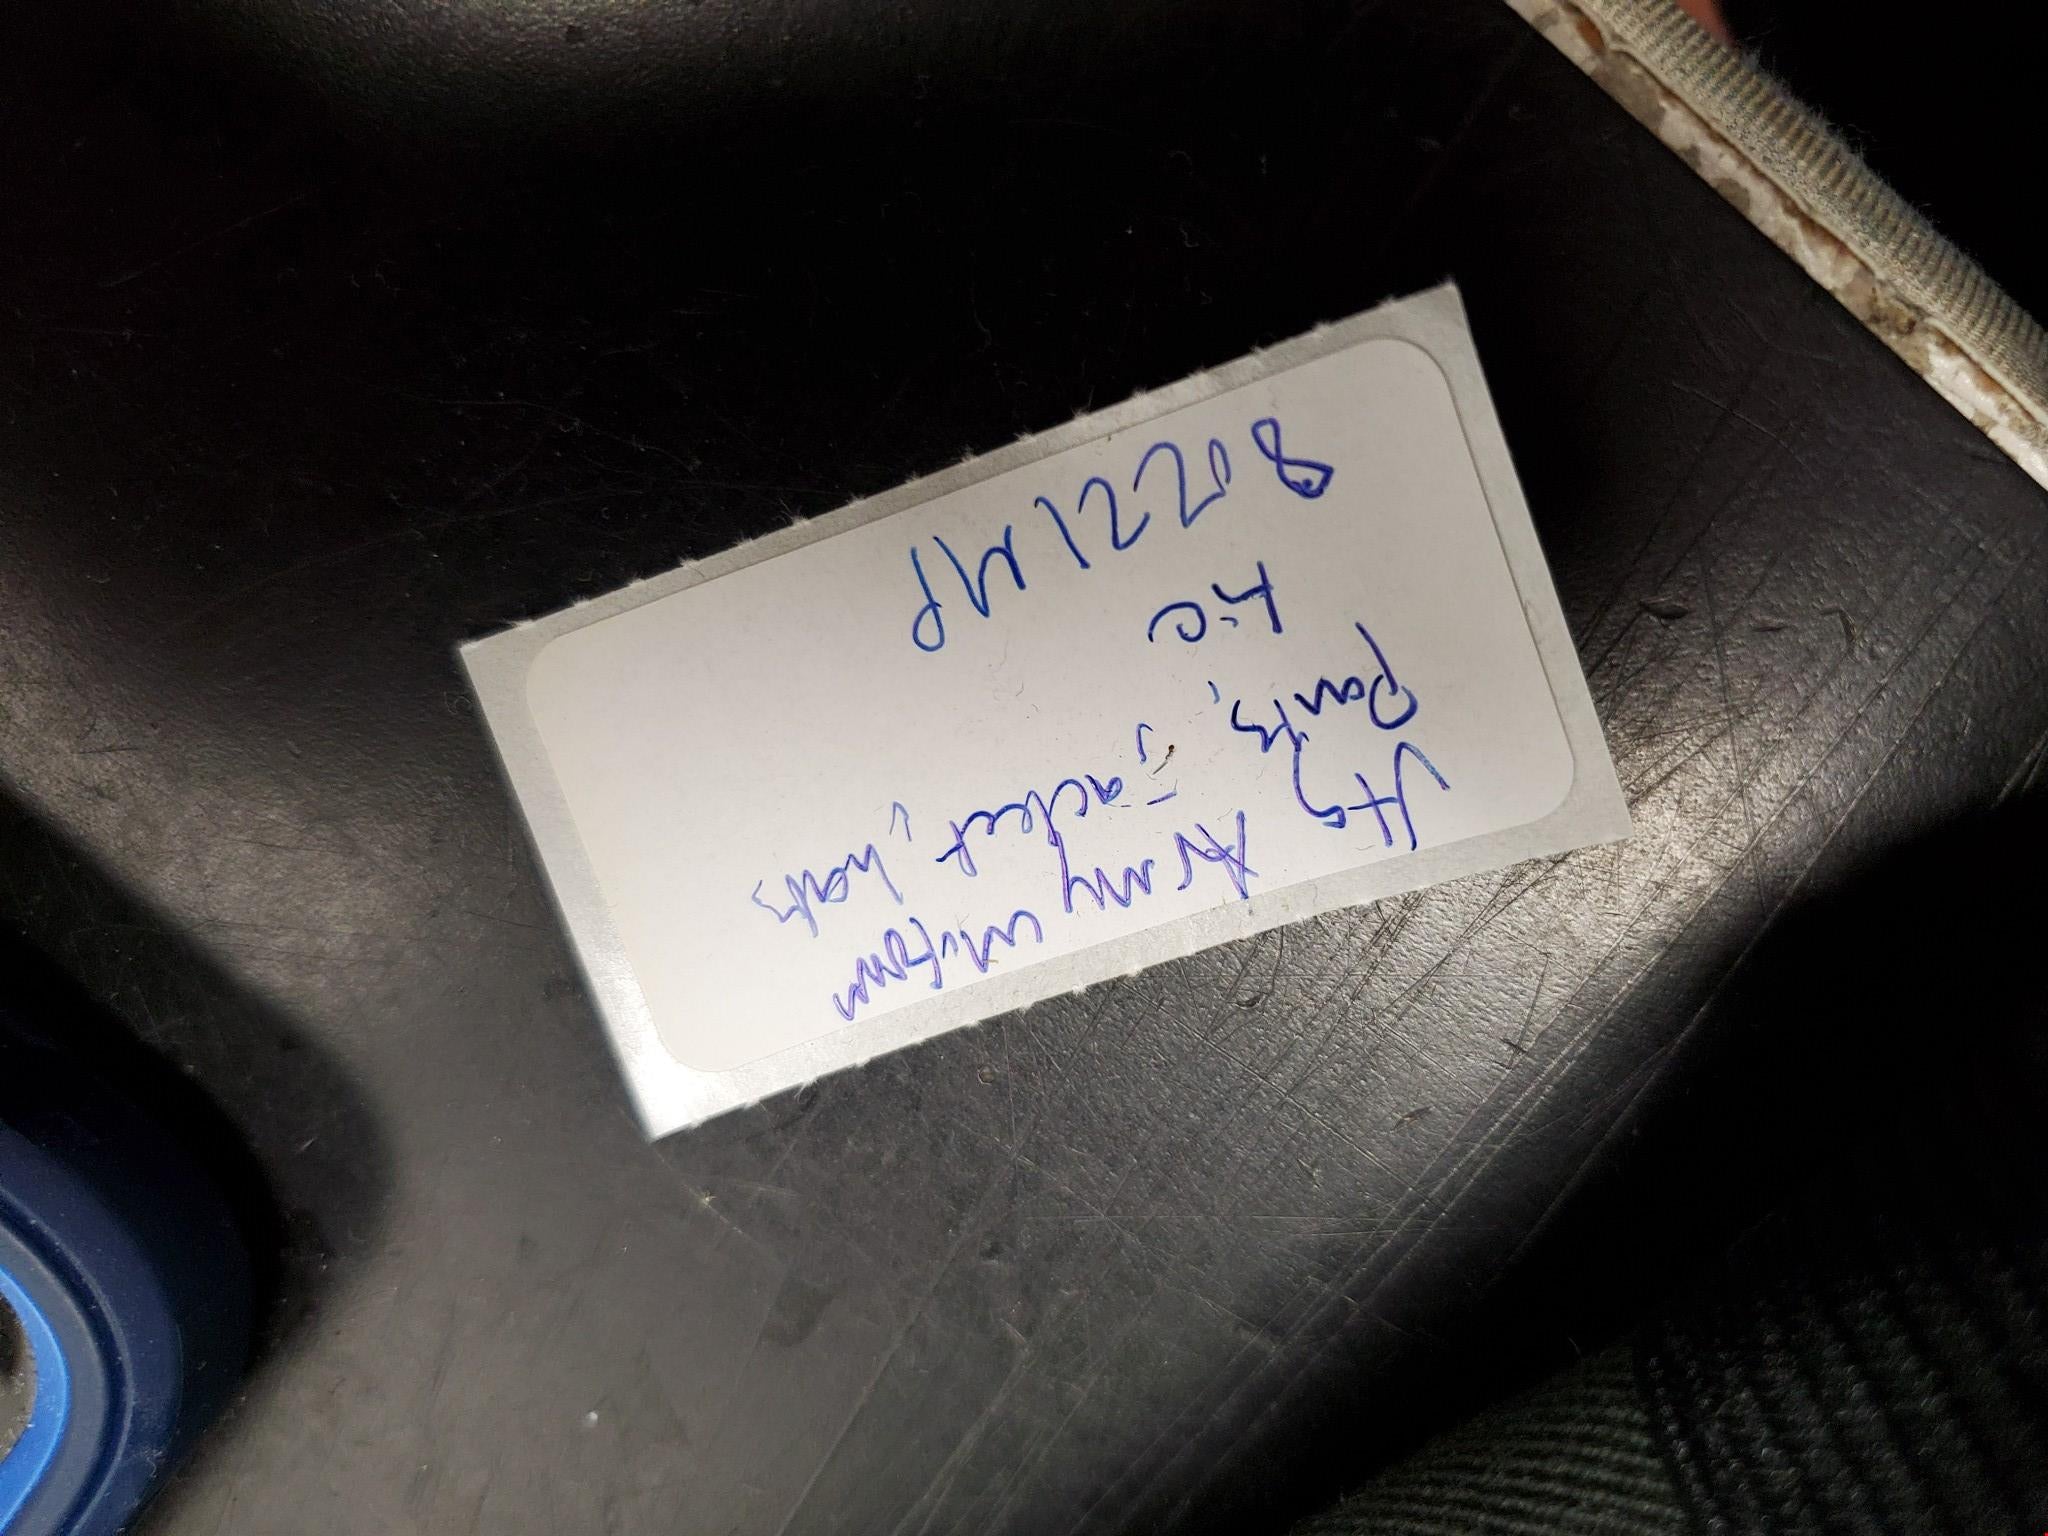 Vtg Army uniform
Pants, Jacket, hats
tie
80221MP